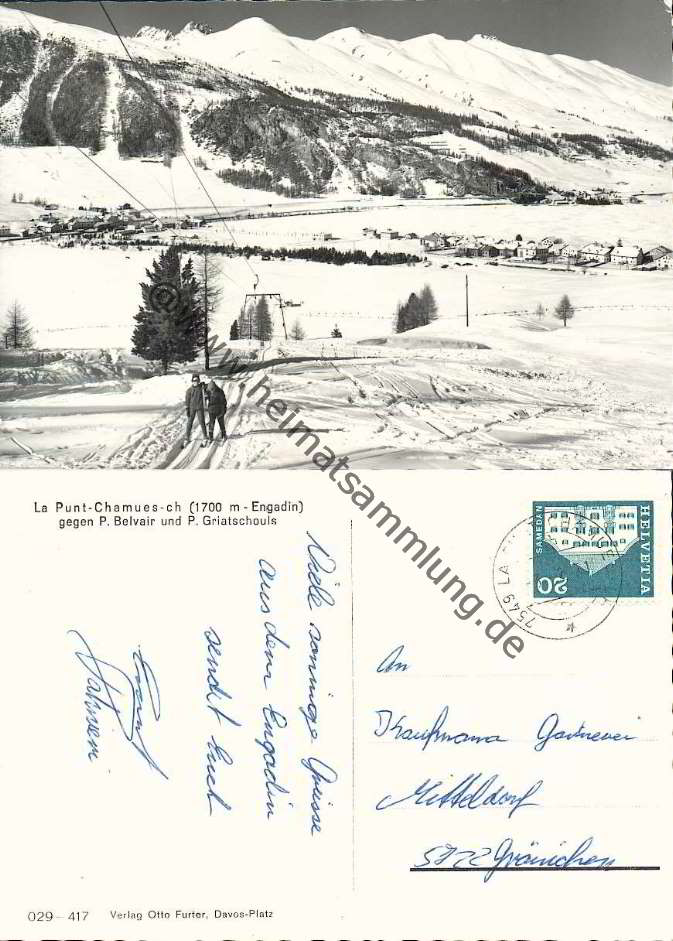 © www.heimatsammlung.de
La Punt-Chamues-ch (1700 m - Engadin)
gegen P. Belvair und P. Griatschouls
Viele sonnige Grüsse
aus dem Engadin
sendet Euch
HELVETIA
SAMEDAN
20
7549 LA
An
Kaufmann Gärtnerei
Mitteldorf
5722 Gränichen
029 - 417 Verlag Otto Furter, Davos-Platz